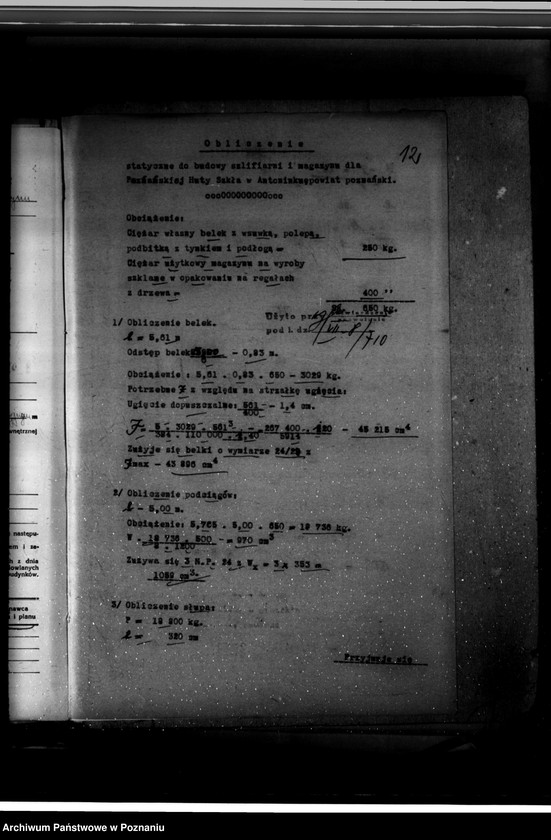 12
Obliczenie
statyczne do budowy szlifierni i magazynu dla
Poznańskiej Huty Szkła w Antoninku powiat poznański.
ooo0000000000ooo
Obciążenie:
Ciężar własny belek z wsuwką, polepą,
podbitką z tynkiem i podłogą = 250 kg.
Ciężar użytkowy magazynu na wyroby
szklane w opakowaniu na regałach
z drzewa = 400 "
650 kg.
Użyto przy
pod l. dz.
1/ Obliczenie belek.
l = 5,61 m
Odstęp belek - 0,83 m.
Obciążenie : 5,61 . 0,83 . 650 - 3029 kg.
Potrzebne J z względu na strzałkę ugięcia:
Ugięcie dopuszczalne: 561/400 - 1,4 cm.
J - 5 . 3029 . 561³ - 267 400 . 220 - 45 215 cm⁴
384 . 110 000 . 1,40 5914
Zużyje się belki o wymiarze 24/
Jmax - 43 896 cm⁴
2/ Obliczenie podciągów:
l - 5,00 m.
Obciążenie: 5,765 . 5,00 . 650 = 18 736 kg.
W . 18 736 . 500 = 970 cm³
8 . 1200
Zużywa się 3 N.P. 24 z Wx = 3 x 353 =
1059 cm³.
3/ Obliczenie słupa:
P = 18 800 kg.
l = 320 cm
Przyjmuje się
m
wnętrznej
następu-
em i ze-
z dnia
dowlanych
budynków.
nawca
i planu
Archiwum Państwowe w Poznaniu